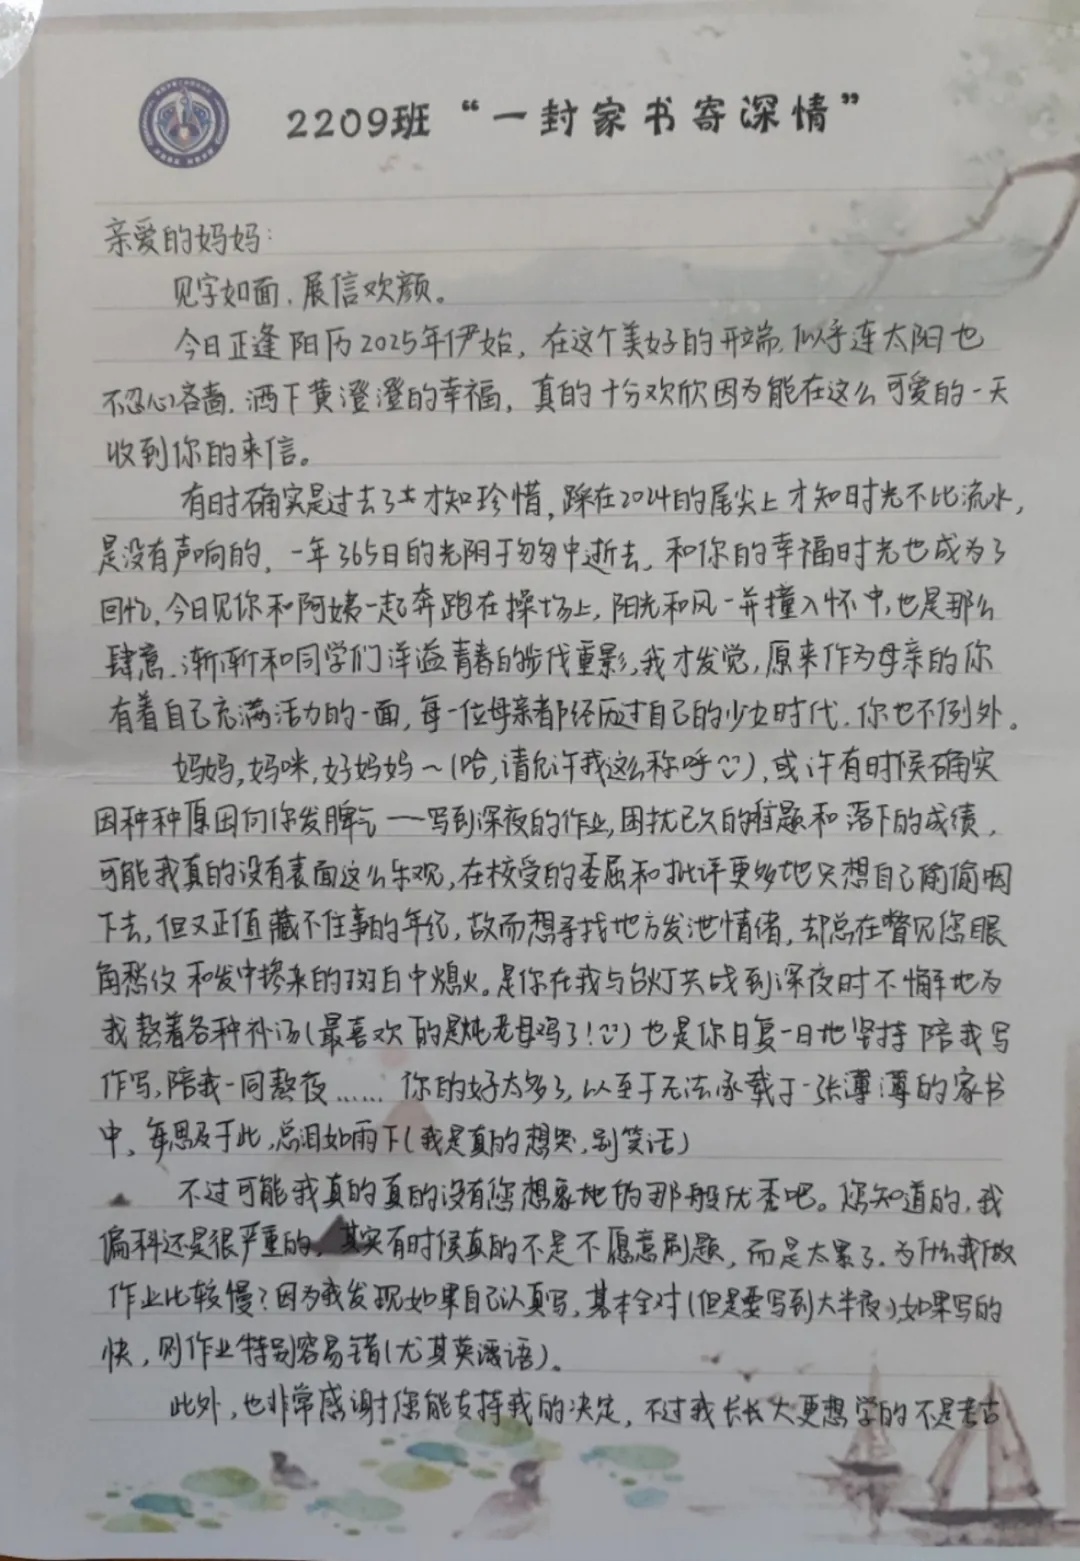 2209班“一封家书寄深情”
亲爱的妈妈：
见字如面，展信欢颜。
今日正逢阳历2025年伊始，在这个美好的开端，似乎连太阳也
不忍心吝啬，洒下黄澄澄的幸福，真的十分欢欣因为能在这么可爱的一天
收到你的来信。
有时确实是过去了才知珍惜，踩在2024的尾尖上才知时光不比流水，
是没有声响的，一年365日的光阴于匆匆中逝去，和你的幸福时光也成为了
回忆，今日见你和阿姨一起奔跑在操场上，阳光和风一并撞入怀中，也是那么
肆意，渐渐和同学们洋溢青春的步伐重影，我才发觉，原来作为母亲的你
有着自己充满活力的一面，每一位母亲都经历过自己的少女时代，你也不例外。
妈妈，妈咪，好妈妈～（哈，请允许我这么称呼），或许有时候确实
因种种原因向你发脾气——写到深夜的作业，困扰已久的难题和落下的成绩，
可能我真的没有表面这么乐观，在接受的委屈和批评更多地只想自己偷偷咽
下去，但又正值藏不住事的年纪，故而想寻找地方发泄情绪，却总在瞥见您眼
角愁纹和发中掺来的斑白中熄火。是你在我与台灯共战到深夜时不懈地为
我熬着各种补汤（最喜欢的是炖老母鸡了！）也是你日复一日地坚持陪我写
作写，陪我一同熬夜……你的好太多了，以至于无法承载于一张薄薄的家书
中，每思及于此，总泪如雨下（我是真的想哭，别笑话）
不过可能我真的真的没有您想象地的那般优秀吧。您知道的，我
偏科还是很严重的，其实有时候真的不是不愿意刷题，而是太累了，为什么我做
作业比较慢？因为我发现如果自己认真写，基本全对（但是要写到大半夜），如果写的
快，则作业特别容易错（尤其英语）。
此外，也非常感谢您能支持我的决定，不过我长长大更想学的不是考古